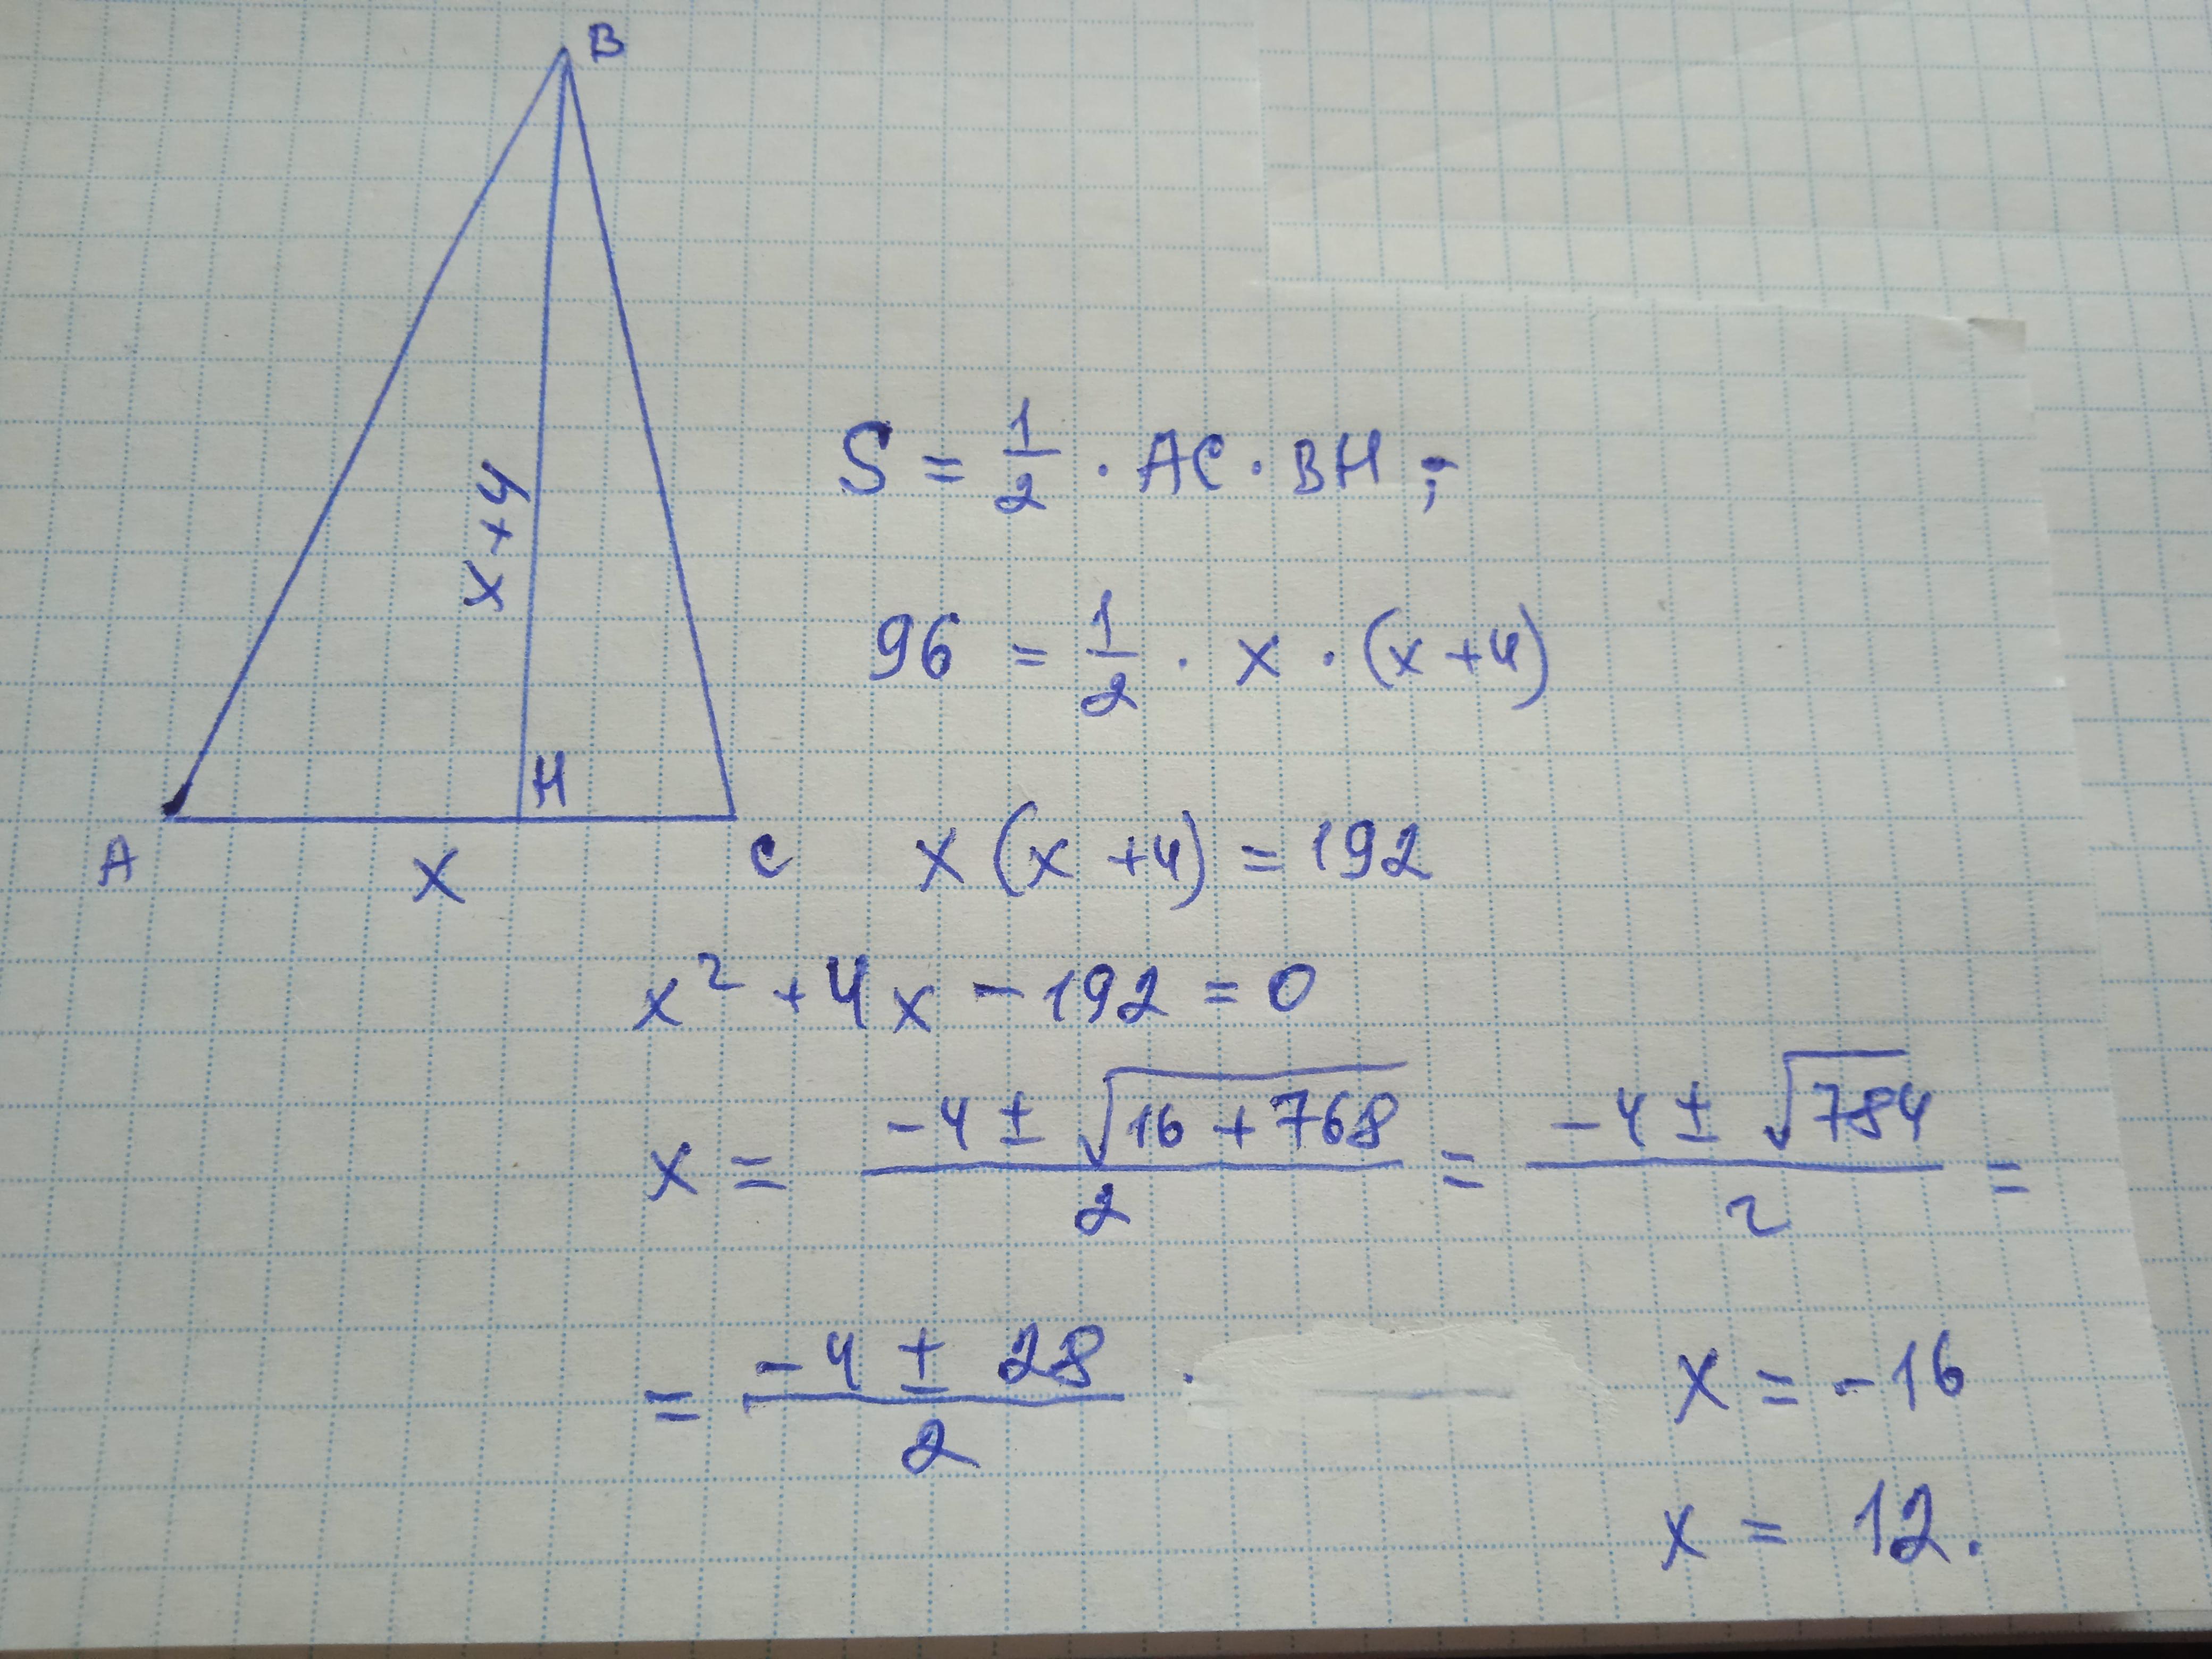 B
x+4
H
A
x
C
S = 1/2 · AC · BH ;
96 = 1/2 · x · (x+4)
x (x +4) = 192
x² + 4x - 192 = 0
x = (-4 ± √(16 + 768))/2 = (-4 ± √784)/2 =
= (-4 ± 28)/2 .
x = -16
x = 12.